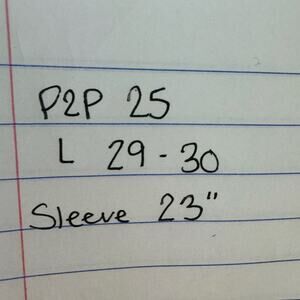 P2P 25
L 29-30
Sleeve 23"